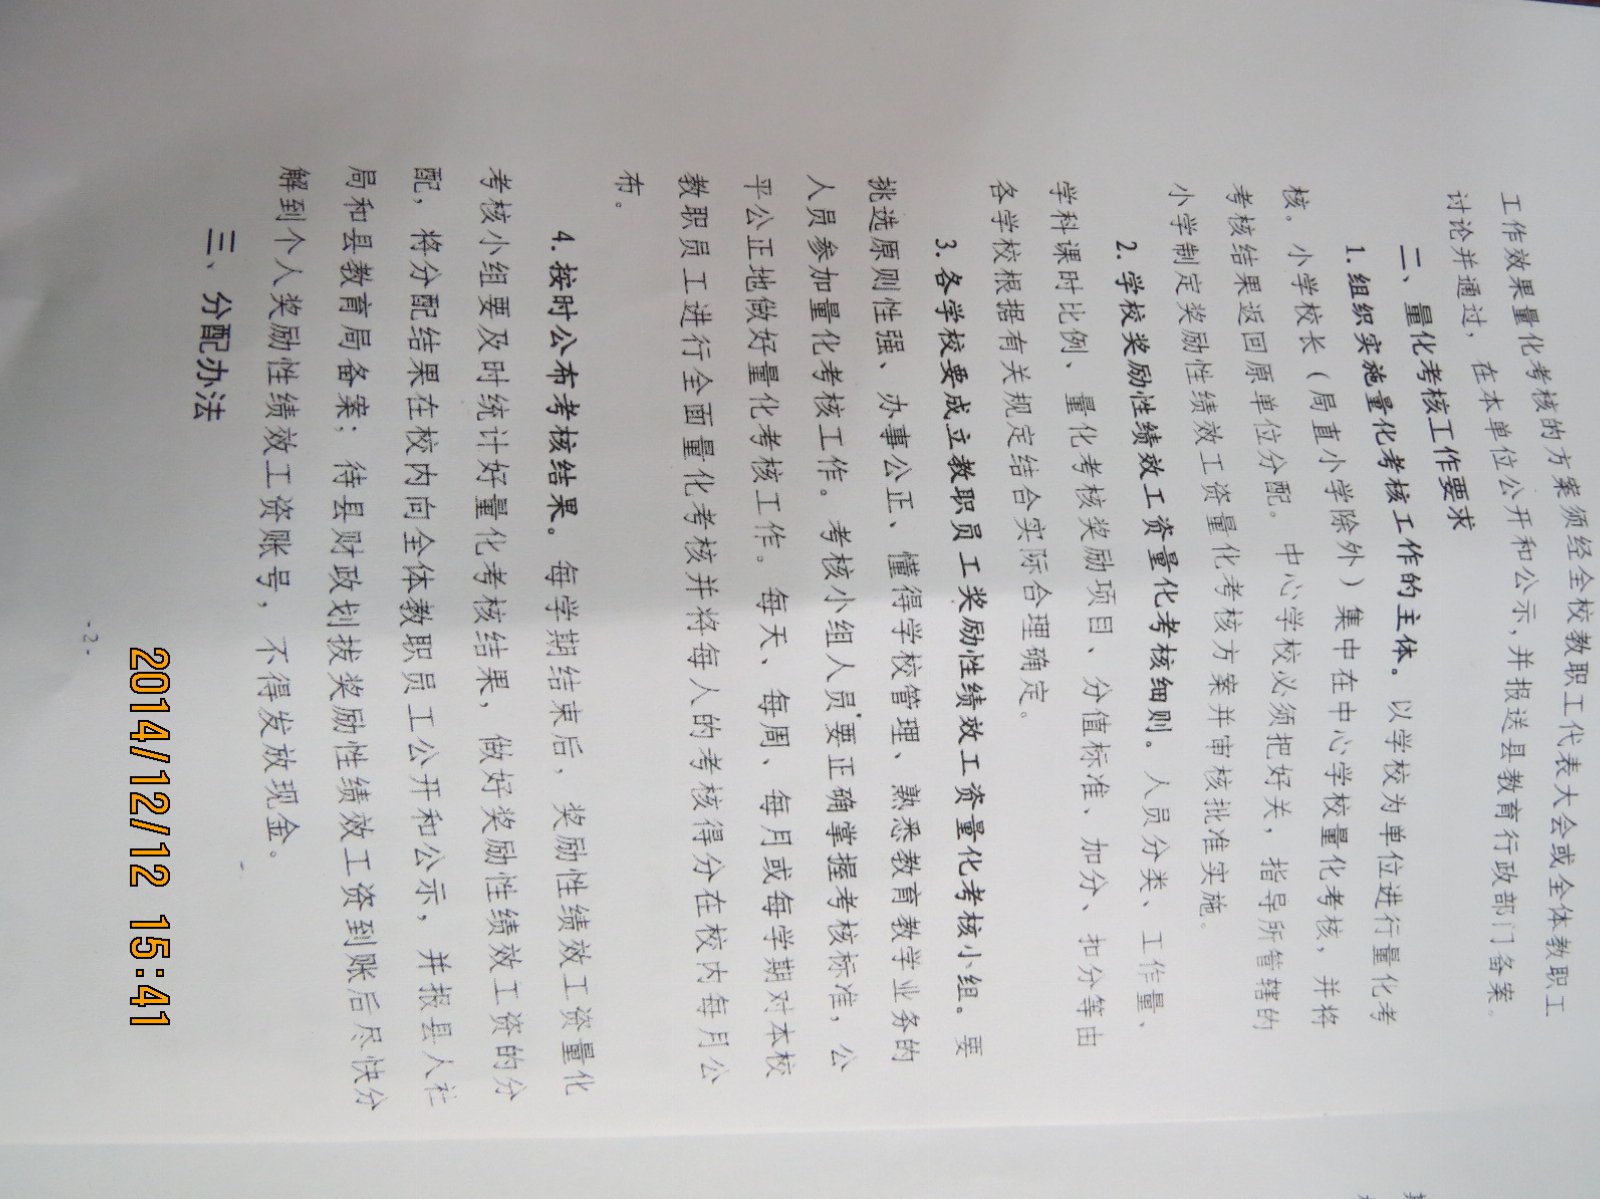 工作效果量化考核的方案须经全校教职工代表大会或全体教职工
讨论并通过，在本单位公开和公示，并报送县教育行政部门备案。
二、量化考核工作要求
1.组织实施量化考核工作的主体。以学校为单位进行量化考
核。小学校长（局直小学除外）集中在中心学校量化考核，并将
考核结果返回原单位分配。中心学校必须把好关，指导所管辖的
小学制定奖励性绩效工资量化考核方案并审核批准实施。
2.学校奖励性绩效工资量化考核细则。人员分类、工作量、
学科课时比例、量化考核奖励项目、分值标准、加分、扣分等由
各学校根据有关规定结合实际合理确定。
3.各学校要成立教职员工奖励性绩效工资量化考核小组。要
挑选原则性强、办事公正、懂得学校管理、熟悉教育教学业务的
人员参加量化考核工作。考核小组人员要正确掌握考核标准，公
平公正地做好量化考核工作。每天、每周、每月或每学期对本校
教职员工进行全面量化考核并将每人的考核得分在校内每月公
布。
4.按时公布考核结果。每学期结束后，奖励性绩效工资量化
考核小组要及时统计好量化考核结果，做好奖励性绩效工资的分
配，将分配结果在校内向全体教职员工公开和公示，并报县人社
局和县教育局备案；待县财政划拨奖励性绩效工资到账后尽快分
解到个人奖励性绩效工资账号，不得发放现金。
三、分配办法
-2-
2014/12/12 15:41